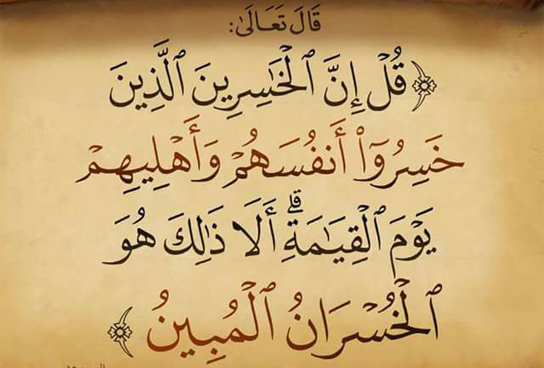 قَالَ تَعَالَىٰ:
﴿قُلْ إِنَّ ٱلْخَٰسِرِينَ ٱلَّذِينَ
خَسِرُوٓا۟ أَنفُسَهُمْ وَأَهْلِيهِمْ
يَوْمَ ٱلْقِيَٰمَةِ ۗ أَلَا ذَٰلِكَ هُوَ
ٱلْخُسْرَانُ ٱلْمُبِينُ﴾